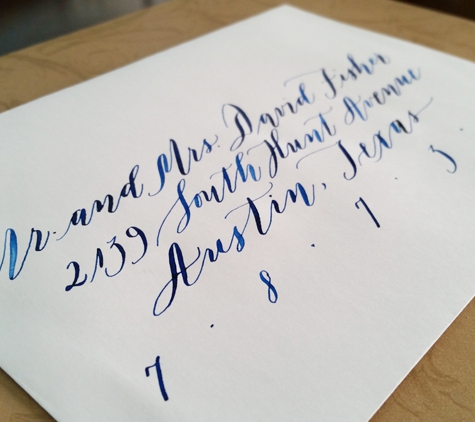 Mr. and Mrs. David Fisher
2139 South Hunt Avenue
Austin, Texas
7 · 8 · 7 · 3 ·